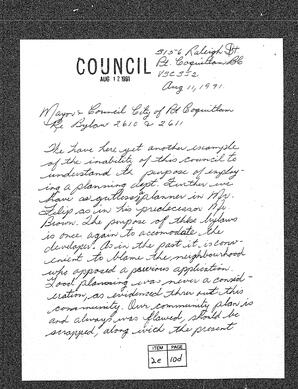 3156 Raleigh St
Pt. Coquitlam BC
V3C 3J2
COUNCIL
AUG 12 1991
Aug 11, 1991.
Mayor & Council City of Pt Coquitlam
Re Bylaw 2610 & 2611
We have here yet another example
of the inability of this council to
understand the purpose of employ-
ing a planning dept. Further we
have as gutless planner in Mr.
as in his predecessor Mr
Brown. The purpose of these bylaws
is once again to accomodate the
developer. As in the past it is conv-
enient to blame the neighbourhood
who opposed a previous application.
Good planning was never a consid-
eration, as evidenced thru out this
community. Our community plan is
and always was flawed, should be
scrapped, along with the present
ITEM PAGE
2e 10d